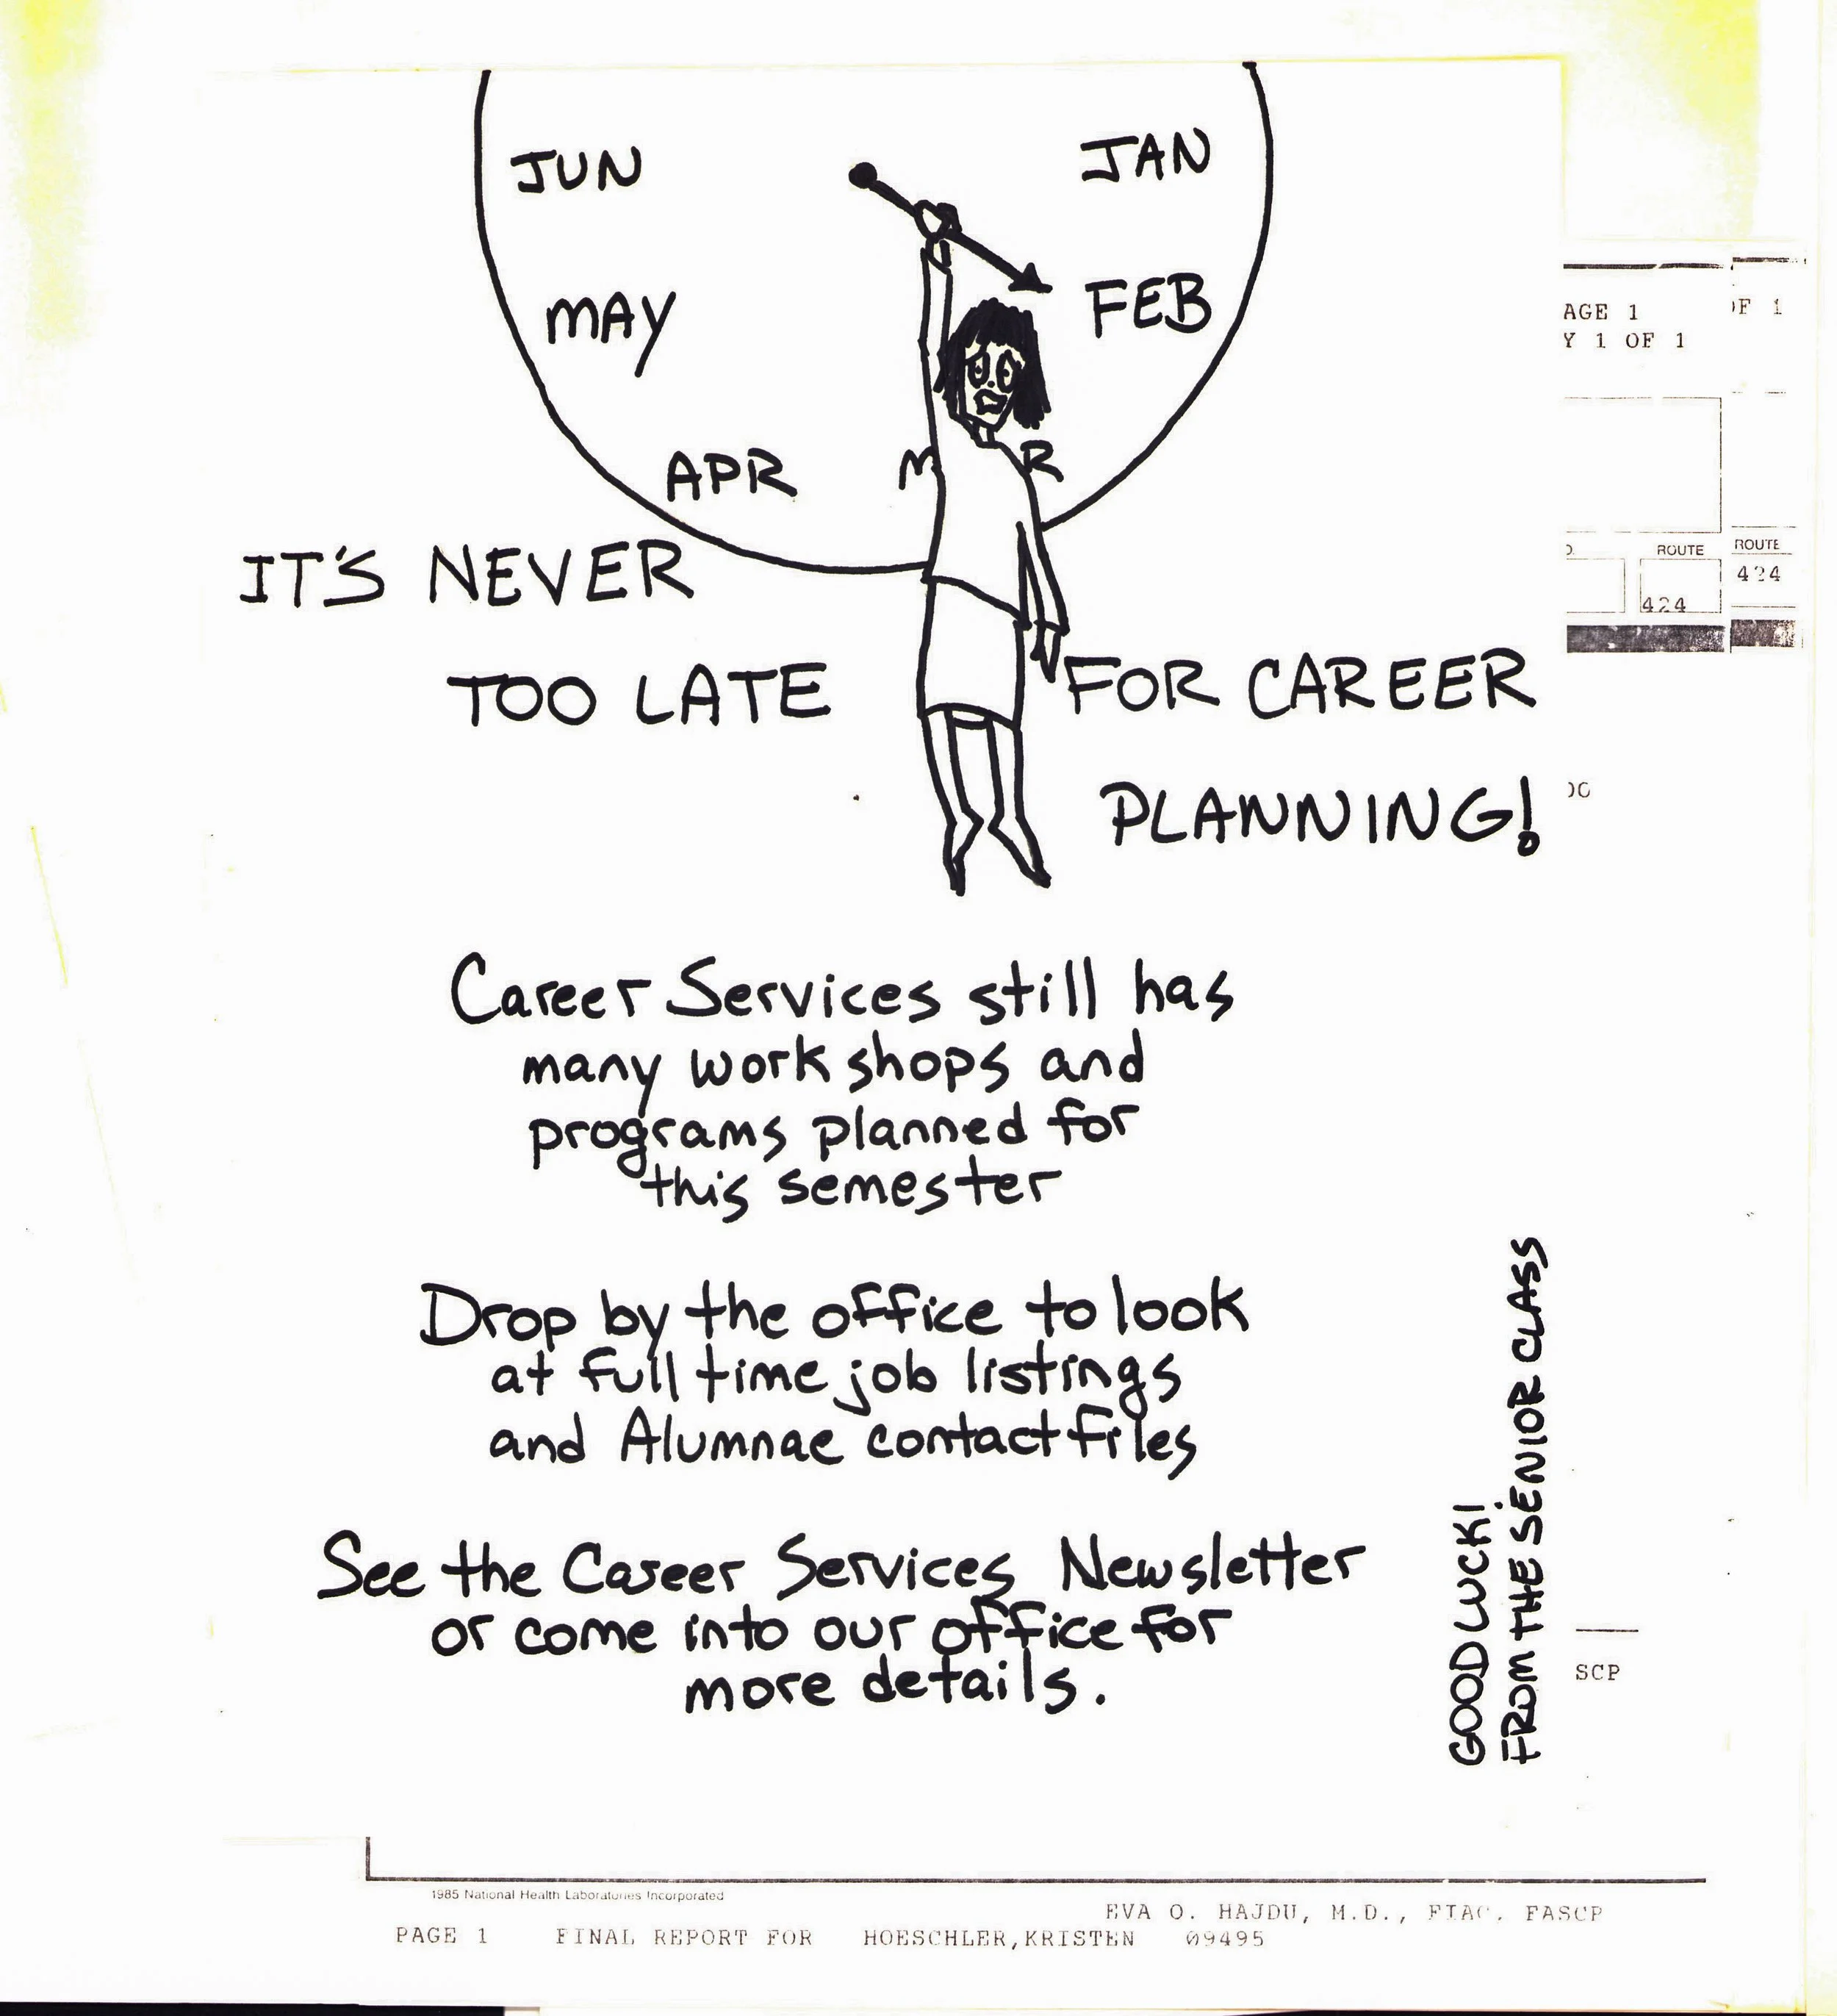 JUN
JAN
MAY
FEB
APR
M R
IT'S NEVER
TOO LATE
FOR CAREER
PLANNING!
Career Services still has
many workshops and
programs planned for
this semester
Drop by the office to look
at full time job listings
and Alumnae contact files
See the Career Services Newsletter
or come into our office for
more details.
GOOD LUCK!
FROM THE SENIOR CLASS
AGE 1
Y 1 OF 1
OF 1
ROUTE
424
ROUTE
424
SCP
1985 National Health Laboratories Incorporated
EVA O. HAJDU, M.D., FIAC, FASCP
PAGE 1 FINAL REPORT FOR HOESCHLER,KRISTEN 09495